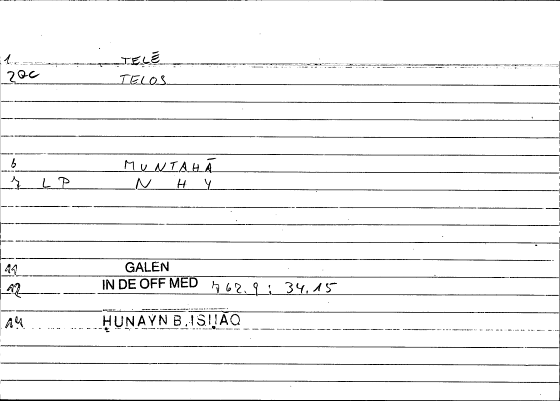 1 TELĒ
2QC TELOS
6 MUNTAHĀ
7 LP N H Y
11 GALEN
12 IN DE OFF MED 762.9 : 34.15
14 ḤUNAYN B. ISḤĀQ